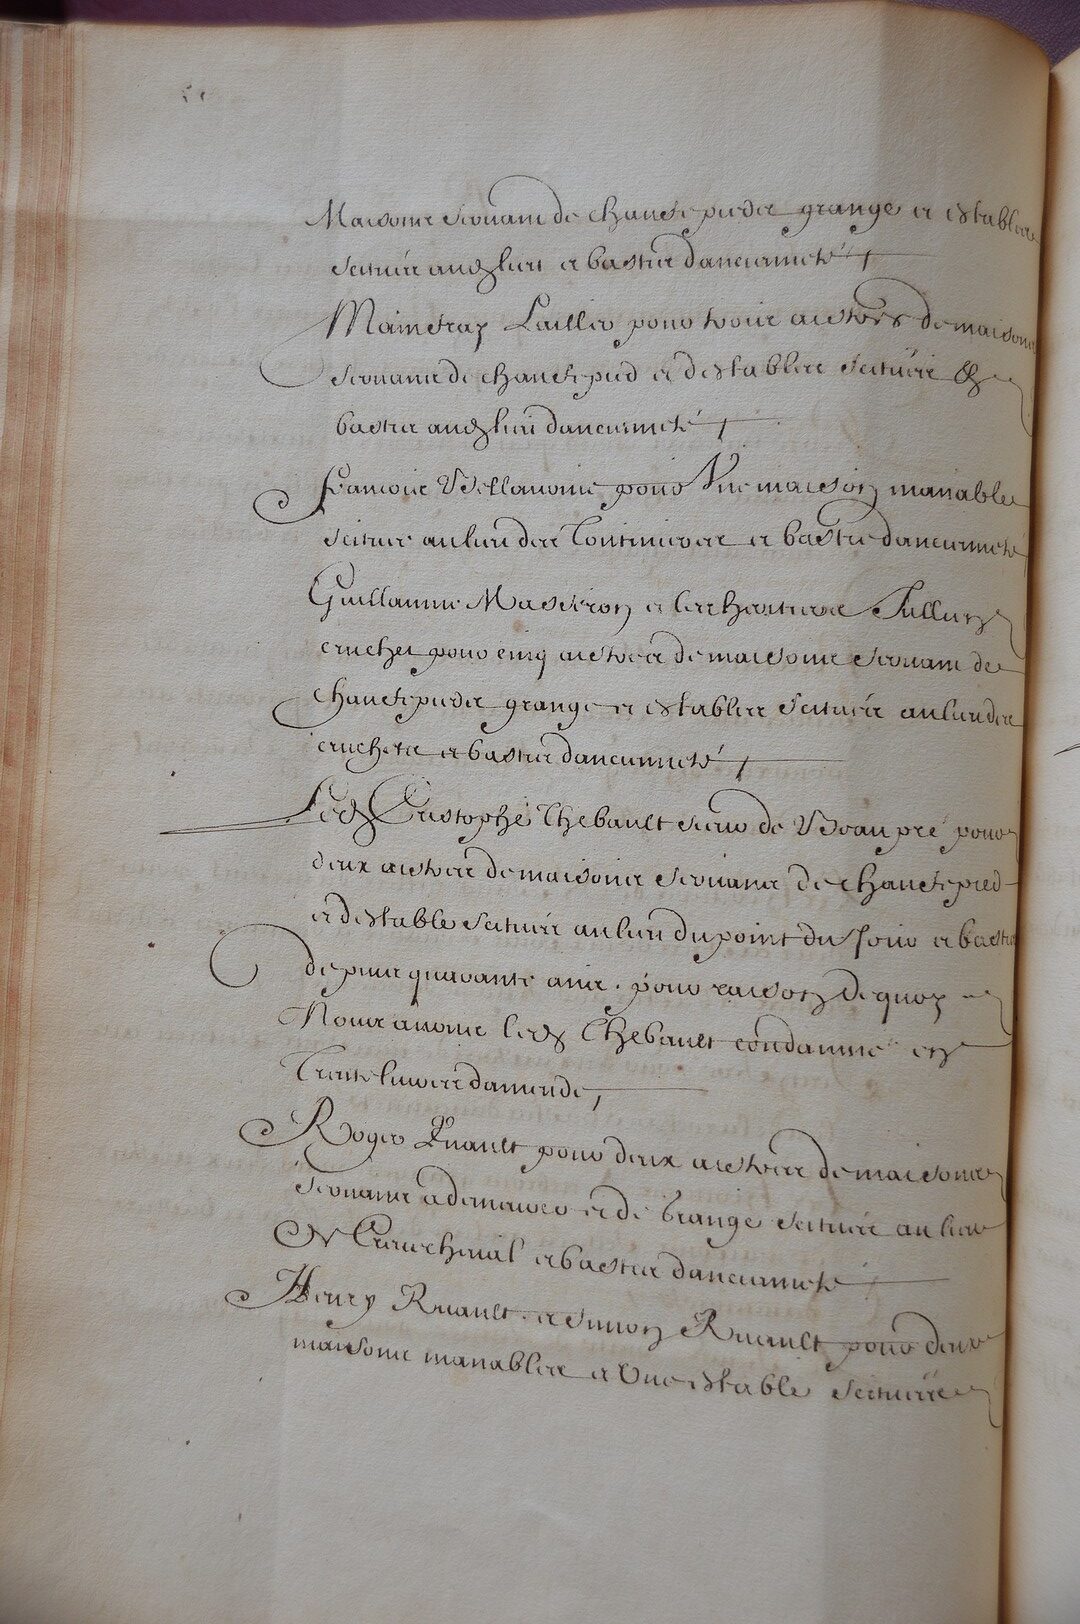 Maisons servant de chauffepieds grange et estables
scitués audit lieu et bastis d'ancienneté
Maindray Laisller pour trois aistres de maisons
servants de chauffepied et d'estables scitués et
bastis audit lieu d'ancienneté
François Bellanoine pour Une maison manable
scituée au lieu des Continieres et bastie d'ancienneté
Guillaume Masseron et les heritiers Jullien
cruchet pour cinq aistres de maisons servant de
chauffepieds grange et estables scitués au lieu des
cruchets et bastis d'ancienneté
Led Cristophe Thebault sieur de Beaupré pour
deux aistres de maisons servans de chauffepied
et d'estable scitués au lieu du point du Jour et bastis
depuis quarante ans. pour raison de quoy
Nous avons led Thebault condamné en
Trente livres damende,
Roger Ruault pour deux aistres de maisons
servans a demeurer et de Grange scitués au lieu
de et bastis d'ancienneté
Henry Ruault et Simon Ruault pour deux
maisons manables et Une estable scituées